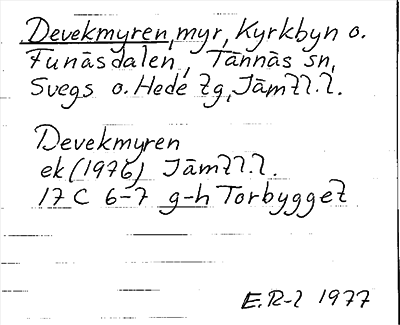 Devekmyren, myr, Kyrkbyn o.
Funäsdalen, Tännäs sn,
Svegs o. Hede tg, Jämtl. l.
Devekmyren
ek (1976) Jämtl. l.
17 C 6-7 g-h Torbygget
E.R-l 1977